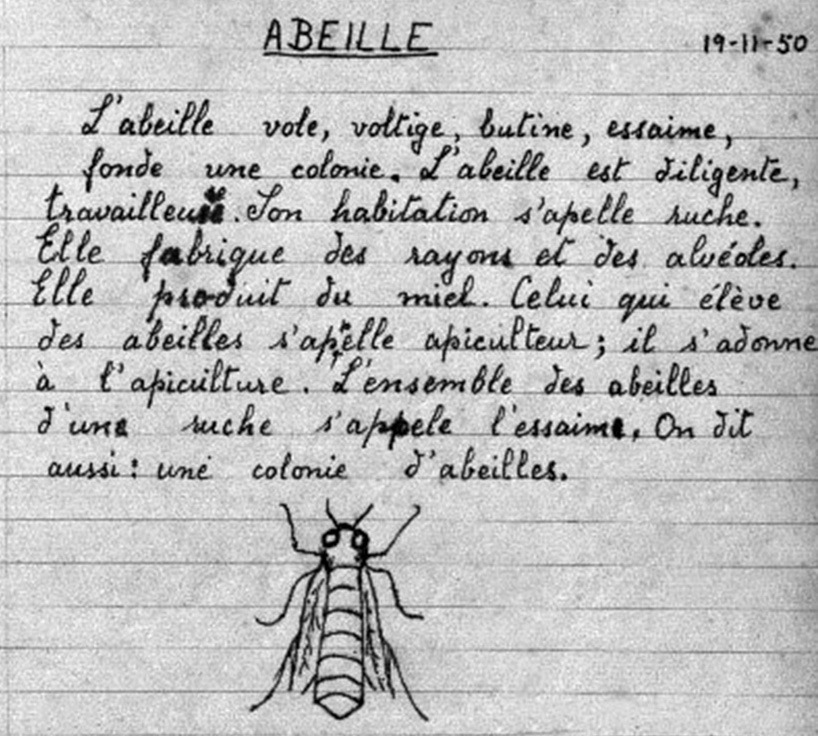 ABEILLE
19-11-50
L'abeille vole, voltige, butine, essaime,
fonde une colonie. L'abeille est diligente,
travailleuse. Son habitation s'apelle ruche.
Elle fabrique des rayons et des alvéoles.
Elle produit du miel. Celui qui élève
des abeilles s'apelle apiculteur; il s'adonne
à l'apiculture. L'ensemble des abeilles
d'une ruche s'appele l'essaime. On dit
aussi: une colonie d'abeilles.